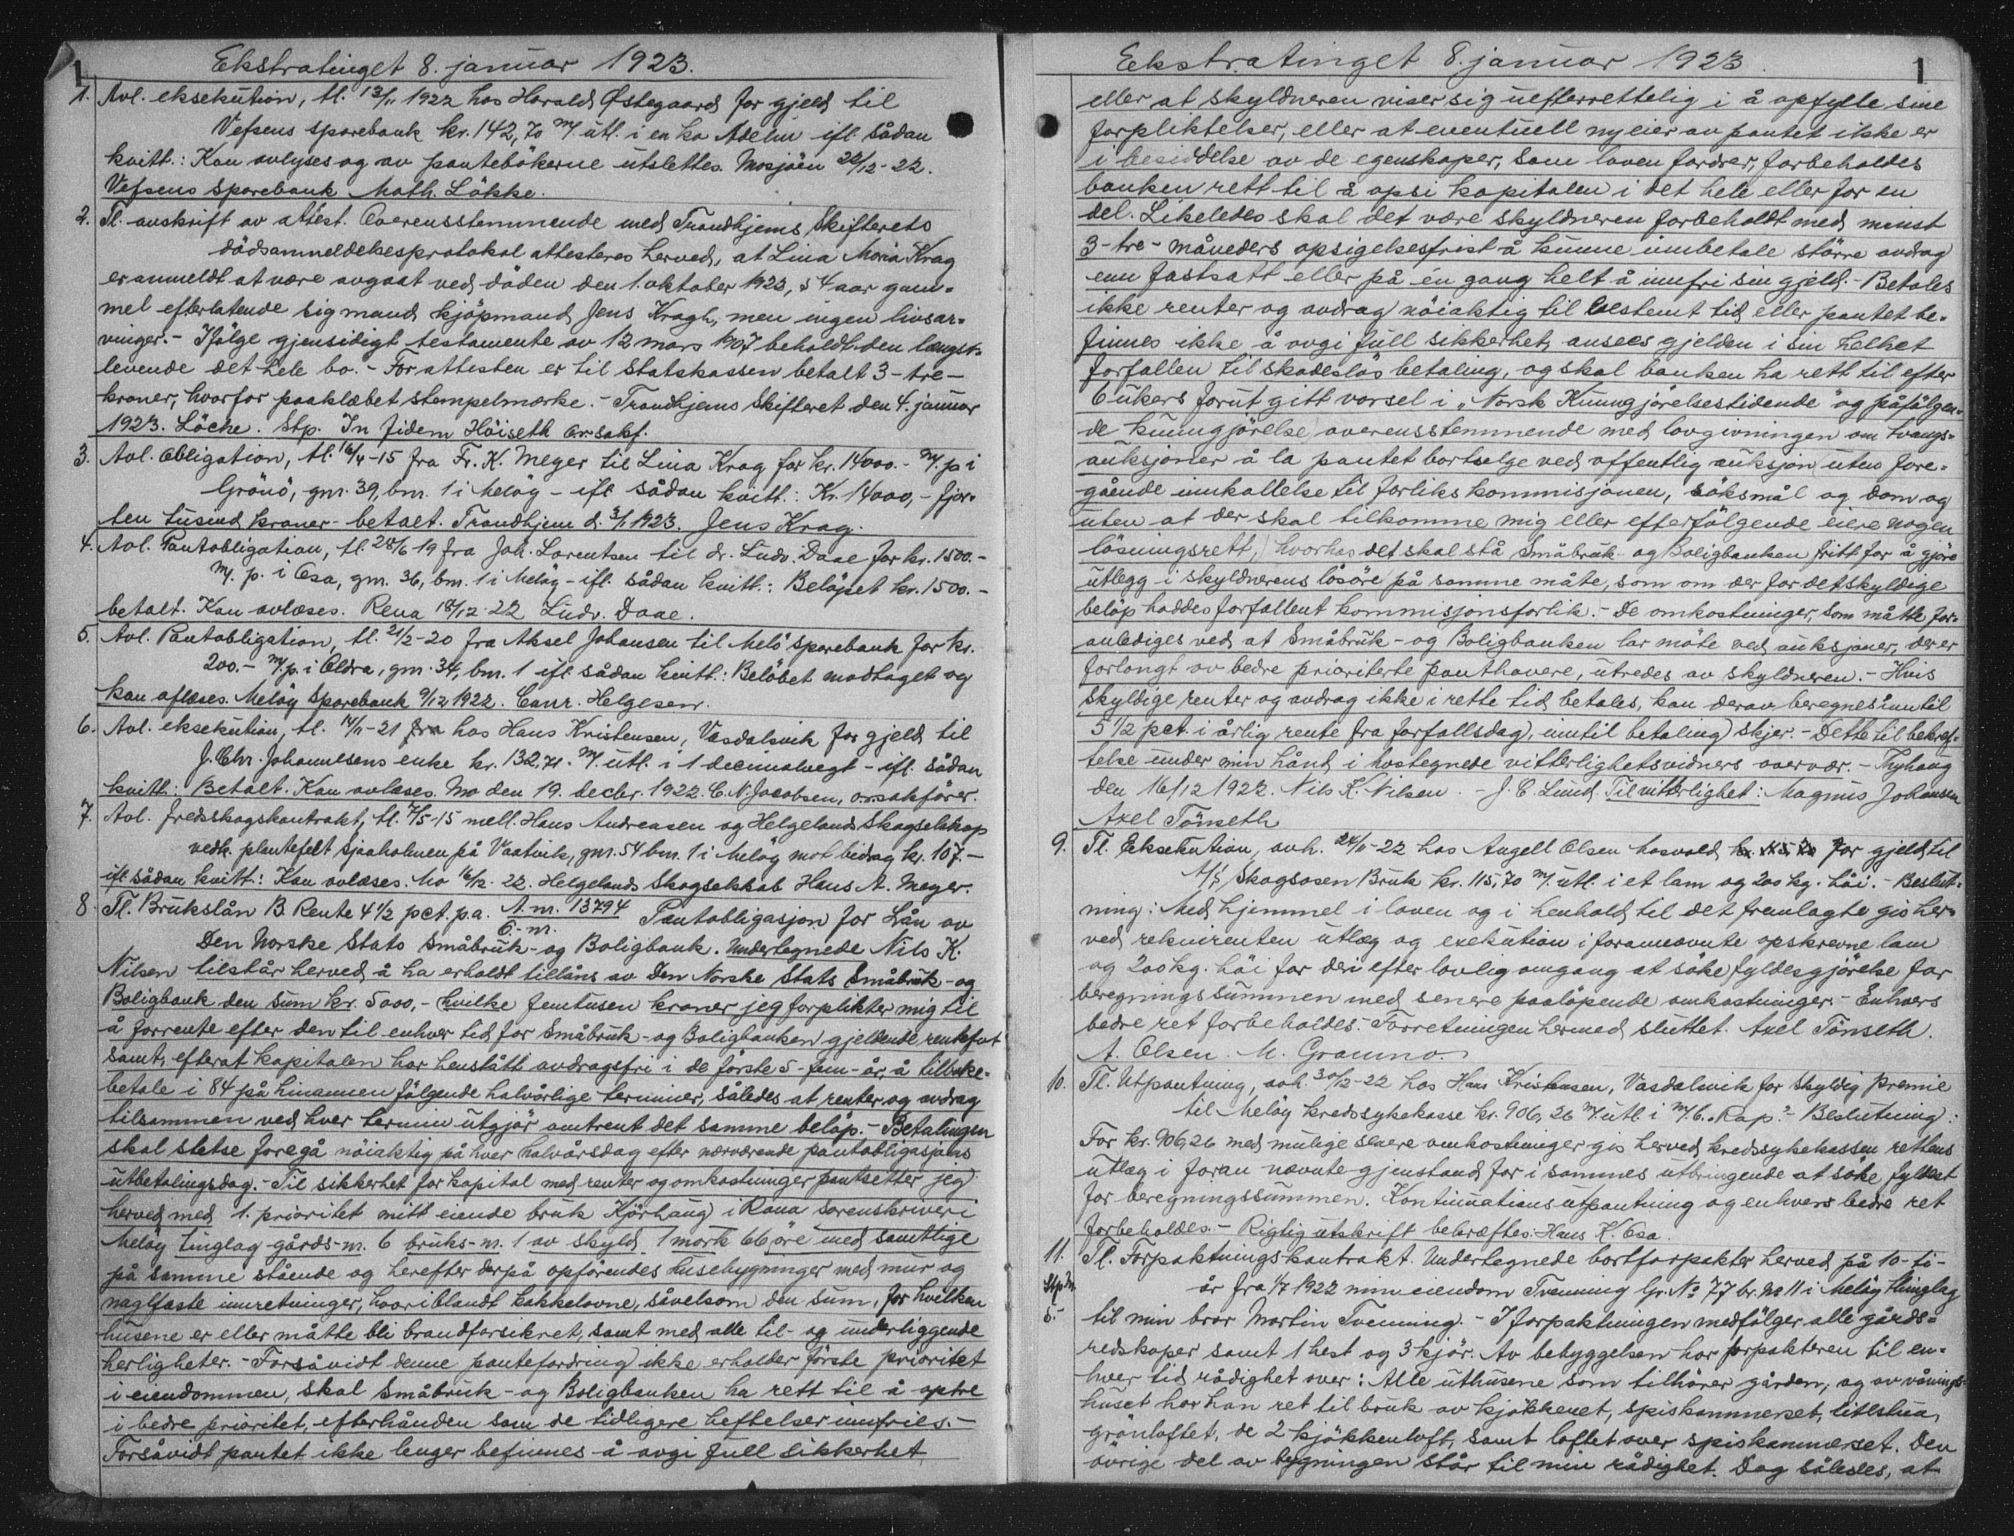 1
Ekstratinget 8. januar 1923.
1. Avl. eksekution, tl. 13/11 1922 hos Harald Østegaard for gjeld til
Vefsens sparebank kr. 142,70 m/ utl. i en ku Adelin ifl. sådan
kvitt.: Kan avlyses og av pantebökerne utslettes. Mosjöen 22/12-22.
Vefsens sparebank Math. Lökke.
2. Tl. avskrift av attest. Overensstemmende med Trondhjems Skifterets
dödsanmeldelsesprotokol attesteres herved, at Lina Maria Krag
er anmeldt at være avgaat ved döden den 1. oktober 1922, 54 aar gam=
mel efterlatende sig mand kjöpmand Jens Kragh, men ingen livsar=
vinger. - Ifölge gjensidigt testamente av 12 mars 1907 beholdt den længst=
levende det hele bo. - For attesten er til Statskassen betalt 3 - tre -
kroner, hvorfor paaklæbet stempelmærke. - Trondhjems Skifteret den 4. januar
1923. Löche. Stp. In fidem Höiseth o.r.sakf.
3. Avl. Obligation, tl. 16/4-15 fra Fr. K. Meyer til Lina Krag for kr. 14000.- m/. p i
Grönö, gnr. 39, bnr. 1 i Melöy - ifl sådan kvitt.: Kr. 14000,- fjor=
ten tusind kroner - betalt. Trondhjem d. 3/1 1923. Jens Krag.
4. Avl. Pantobligation, tl. 28/6 19 fra Joh. Lorentsen til dr. Ludv. Daae for kr. 1500.-
m/. p. i Osa, gnr. 36, bnr. 1 i Melöy - ifl. sådan kvitt.: Belöpet kr. 1500.-
betalt. Kan avlæses. Rena 18/12-22 Ludv. Daae.
5. Avl. Pantobligation, tl. 21/2-20 fra Aksel Johansen til Melö sparebank for kr.
200.- m/. p. i Oldra, gnr. 34, bnr. 1 ifl. sådan kvitt.: Belöbet modtaget og
kan aflæses. Melöy Sparebank 9/12 1922. Conr. Helgesen.
6. Avl. eksekution, tl. 14/11-21 fra hos Hans Kristensen, Vasdalsvik for gjeld til
J. Chr. Johannesens enke kr. 132,71. m/ utl. i 1 decimalvegt - ifl. sådan
kvitt.: Betalt. Kan avlæses. Mo den 19. decbr. 1922. C. N. Jacobsen, o.r.sakförer.
7. Avl. fredskogskontrakt, tl. 7/5-15 mell. Hans Andreasen og Helgelands Skogselskap
vedk. plantefelt Sjaaholmen på Vaatvik, gnr. 54 bnr. 1 i Melöy mot bidrag kr. 107.-
ifl sådan kvitt: Kan avlæses. Mo 16/12-22. Helgelands Skogselskab Hans A. Meyer.
8 Tl. Brukslån B. Rente 4 1/2 pct. p. a. A. nr. 13794 Pantobligasjon for Lån av
C. nr.
Den Norske Stats Småbruk- og Boligbank. Undertegnede Nils K.
Nilsen tilstår herved å ha erholdt tillåns av Den Norske Stats Småbruk- og
Boligbank den sum kr. 5000,- hvilke femtusen kroner jeg forplikter mig til
å forrente efter den til enhver tid for Småbruk- og Boligbanken gjeldende rentefot
samt, efterat kapitalen har henstått avdragsfri i de förste 5 - fem - år, å tilbake=
betale i 84 på hinannen fölgende halvårlige terminer, således at renter og avdrag
tilsammen ved hver termin utgjör omtrent det samme belöp. - Betalingen
skal stetse foregå nöiaktig på hver halvårsdag efter nærværende pantobligasjons
utbetalingsdag. - Til sikkerhet for kapital med renter og omkostninger pantsetter jeg
herved med 1. prioritet mitt eiende bruk Kjörhaug i Rana sorenskriveri
Melöy tinglag gårds-nr. 6 bruks-nr. 1 av skyld 1 mark 66 öre med samtlige
på samme stående og herefter derpå opförendes husebygninger med mur og
naglfaste innretninger, hvoriblandt kakkelovne, såvelsom den sum, for hvilken
husene er eller måtte bli brandforsikret, samt med alle til- og underliggende
herligheter. - Forsåvidt denne pantefordring ikke erholder förste prioritet
i eiendommen, skal Småbruk- og Boligbanken ha rett til å optre
i bedre prioritet, efterhånden som de tidligere heftelser innfries. -
Forsåvidt pantet ikke lenger befinnes å avgi full sikkerhet,
Ekstratinget 8. januar 1923
1
eller at skyldneren viser sig uefterrettelig i å opfylle sine
forpliktelser, eller at eventuell ny eier av pantet ikke er
i besiddelse av de egenskaper, som loven fordrer, forbeholdes
banken rett til å opsi kapitalen i det hele eller for en
del. Likeledes skal det være skyldneren forbeholdt med minst
3 - tre - måneders opsigelsesfrist å kunne innbetale större avdrag
enn fastsatt eller på én gang helt å innfri sin gjeld. - Betales
ikke renter og avdrag nöiaktig til bestemt tid eller pantet be=
finnes ikke å avgi full sikkerhet, ansees gjelden i sin helhet
forfallen til skadeslös betaling, og skal banken ha rett til efter
6 ukers forut gitt varsel i "Norsk Kunngjörelsestidende" og påfölgen=
de kunngjörelse overensstemmende med lovgivningen om tvangs=
auksjoner å la pantet bortselge ved offentlig auksjon uten fore=
gående innkallelse til forlikskommisjonen, söksmål og dom og
uten at der skal tilkomme mig eller efterfölgende eiere nogen
lösningsrett, hvorhos det skal stå Småbruk- og Boligbanken fritt for å gjöre
utlegg i skyldnerens lösöre på samme måte, som om der for det skyldige
belöp haddes forfallent kommisjonsforlik. - De omkostninger, som måtte for=
anlediges ved at Småbruk- og Boligbanken lar möte ved auksjoner, der er
forlangt av bedre prioriterte panthavere, utredes av skyldneren. - Hvis
skyldige renter og avdrag ikke i rette tid betales, kan derav beregnes inntil
5 1/2 pct. i årlig rente fra forfallsdag, inntil betaling skjer. - Dette til bekref=
telse under min hånd i hostegnede vitterlighetsvidners overvær. - Thyhaug
den 16/12 1922. Nils K. Nilsen. - J. C Lund Til vitterlighet: Magnus Johansen
Axel Tönseth
9. Tl. Eksekution, avh. 24/11-22 hos Angell Olsen Mosvold for gjeld til
A/S Skogsosen Bruk kr. 115,70 m/. utl. i et lam og 200 kg. höi. - Beslut=
ning: Med hjemmel i loven og i henhold til det fremlagte gis her=
ved rekvirenten utlæg og exekution i forannævnte opskrevne lam
og 200 kg. höi for deri efter lovlig omgang at söke fyldesgjörelse for
beregningssummen med senere paalöpende omkostninger. - Enhvers
bedre ret forbeholdes. Forretningen hermed sluttet. Axel Tönseth.
A. Olsen. M. Gramno.
10. Tl. Utpantning, avh. 30/12-22 hos Hans Kristensen, Vasdalsvik for skyldig premie
til Melöy kredssykekasse kr. 906,26 m/ utl i m/b. "Rap". - Beslutning:
For kr. 906,26 med mulige senere omkostninger gis herved kredssykekassen rettens
utlæg i foran nævnte gjenstand for i sammes utbringende at söke fyldest
for beregningssummen. Kontinuationsutpantning og enhvers bedre ret
forbeholdes. - Rigtig utskrift bekræftes: Hans K. Osa.
11. Tl. Forpaktningskontrakt. Undertegnede bortforpakter herved på 10 - ti -
Stp
5.- år fra 1/7 1922 min eiendom Tvenning Gr. No 77 br. no 11 i Melöy thinglag
til min bror Martin Tvenning. - I forpaktningen medfölger alle gårds=
redskaper samt 1 hest og 3 kjör. Av bebyggelsen har forpakteren til en=
hver tid rådighet over: Alle uthusene som tilhörer gården, og av vånings=
huset har han ret til bruk av kjökkenet, spiskammerset, litlstua,
grönloftet, de 2 kjökkenloft, samt loftet over spiskammerset. Den
övrige del av bygningen står til min rådighet. Dog således, at